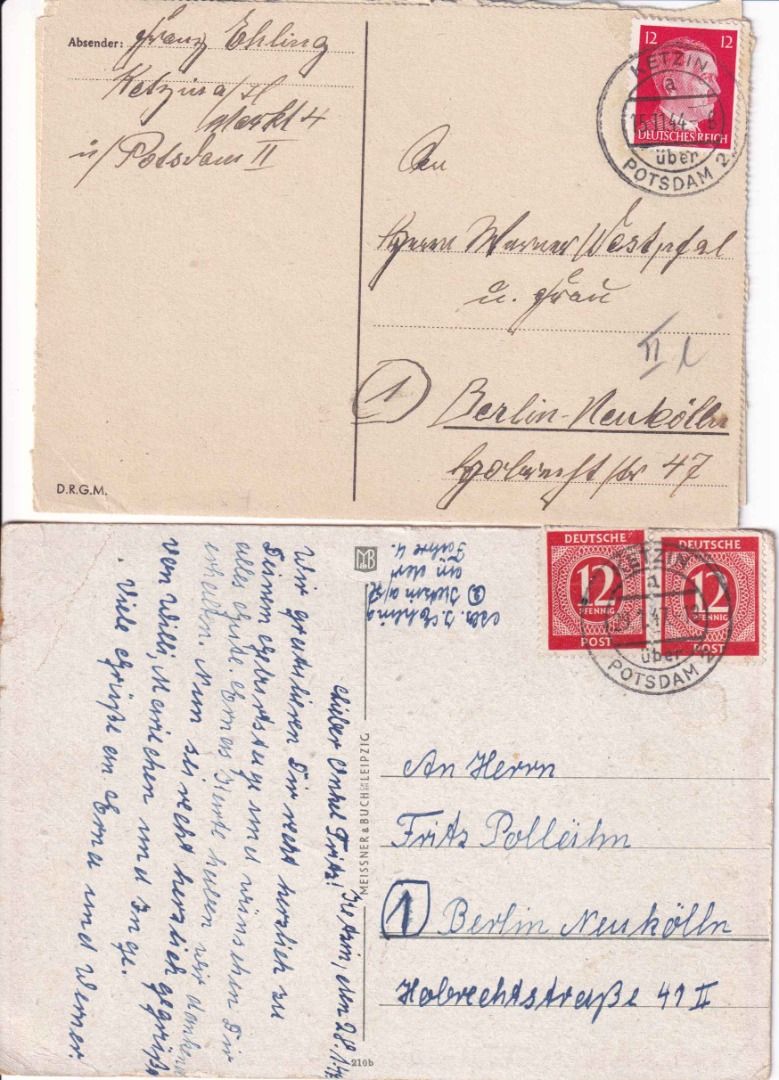 Absender: Franz Ehling
Ketzin a/H
Markt 4
ü/Potsdam II
D.R.G.M.
12 12
DEUTSCHES REICH
KETZIN
a
15.11.44
über
POTSDAM 2
An
Herrn Werner Westpfal
u. Frau
II
1
Berlin-Neukölln
Hobrechtstr 47
DEUTSCHE
12
PFENNIG
POST
DEUTSCHE
12
PFENNIG
POST
KETZIN
a
über
POTSDAM 2
MB
Abs. J. Ehling
Ketzin a/H.
An der
Fähre 4.
Ketzin, den 28.1.47
Lieber Onkel Fritz!
Wir gratulieren Dir recht herzlich zu
Deinem Geburtstage und wünschen Dir
alles Gute. Ernas Karte haben wir dankend
erhalten. Nun sei recht herzlich gegrüßt
von Willi, Mariechen und Inge.
Viele Grüße an Erna und Werner.
MEISSNER & BUCH LEIPZIG
216b
An Herrn
Fritz Polleihn
1 Berlin Neukölln
Hobrechtstraße 41 II